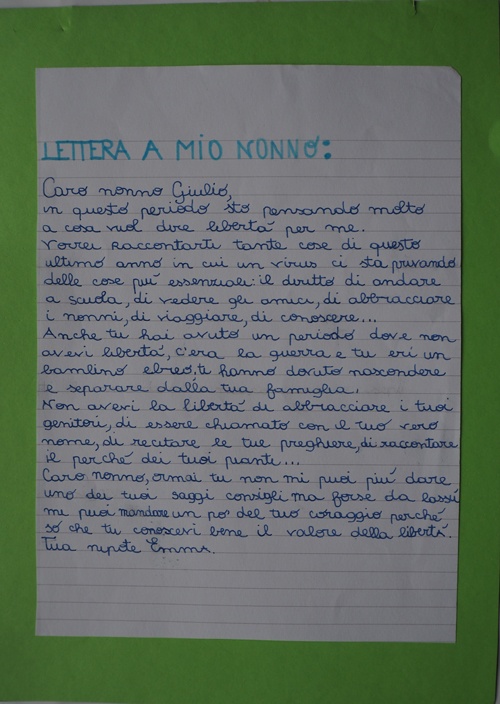 LETTERA A MIO NONNO:
Caro nonno Giulio,
in questo periodo sto pensando molto
a cosa vuol dire libertà per me.
Vorrei raccontarti tante cose di questo
ultimo anno in cui un virus ci sta privando
delle cose più essenziali: il diritto di andare
a scuola, di vedere gli amici, di abbracciare
i nonni, di viaggiare, di conoscere...
Anche tu hai avuto un periodo dove non
avevi libertà, c'era la guerra e tu eri un
bambino ebreo, ti hanno dovuto nascondere
e separare dalla tua famiglia.
Non avevi la libertà di abbracciare i tuoi
genitori, di essere chiamato con il tuo vero
nome, di recitare le tue preghiere, di raccontare
il perché dei tuoi pianti...
Caro nonno, ormai tu non mi puoi più dare
uno dei tuoi saggi consigli ma forse da lassù
mi puoi mandare un po' del tuo coraggio perché
so che tu conoscevi bene il valore della libertà.
Tua nipote Emma.